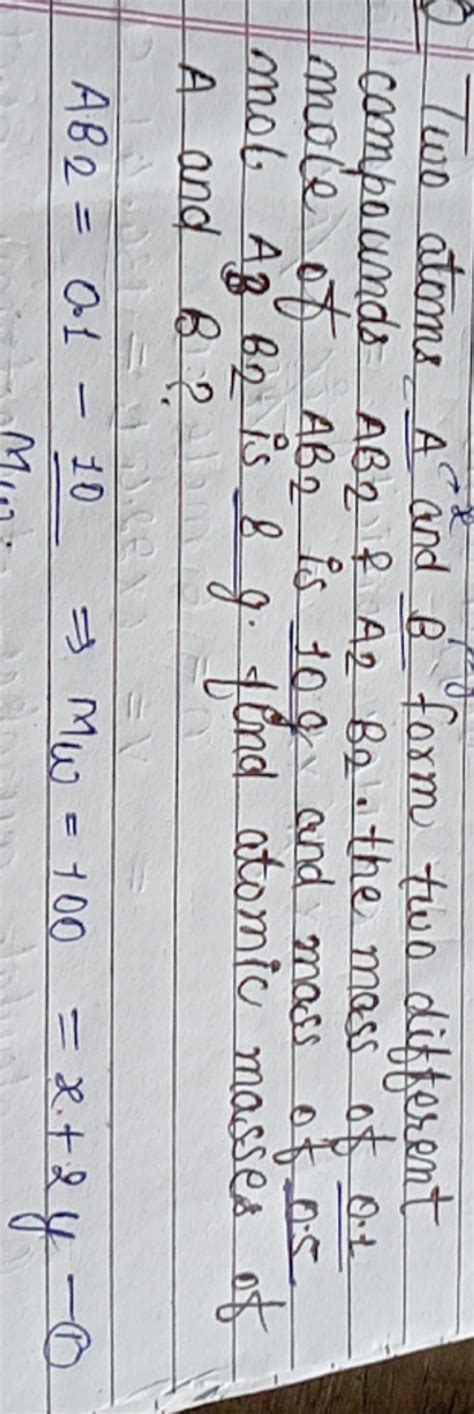 Two atoms A → x and B → y form two different
compounds AB2 & A2 B2. the mass of 0.1
mole of AB2 is 10g and mass of 0.5
mol A3 B2 is 8 g. find atomic masses of
A and B?
AB2 = 0.1 - 10 ⇒ Mw = 100 = x + 2y - ①
Mw.